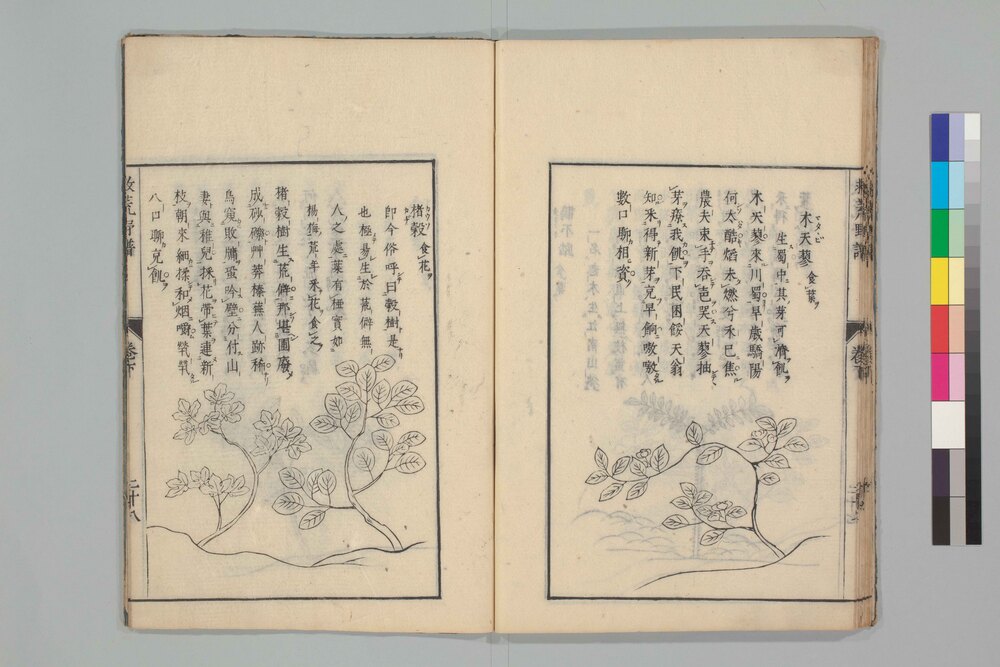 木天蓼 食葉
生蜀中其芽可濟飢
木天蓼來川蜀早歲驕陽
何太酷焰未燃兮禾已焦
農夫束手吞芭哭天蓼抽
芽療我飢下民困餒天翁
知采得新芽克早餉嗷嗷
數口聊相資
楮穀 食花
即今俗呼曰穀樹是
也極易生於荒僻無
人之處葉有椏實如
楊梅荒年采花食之
楮穀樹生荒僻那堪圃廢
成砂礫艸莽榛蕪人跡稀
鳥窺敗牖蛩吟壁分付山
妻與稚兒採花帶葉連新
枝朝來細揉和烟嚼煢煢
八口聊充飢
救荒野譜
卷下
二十八